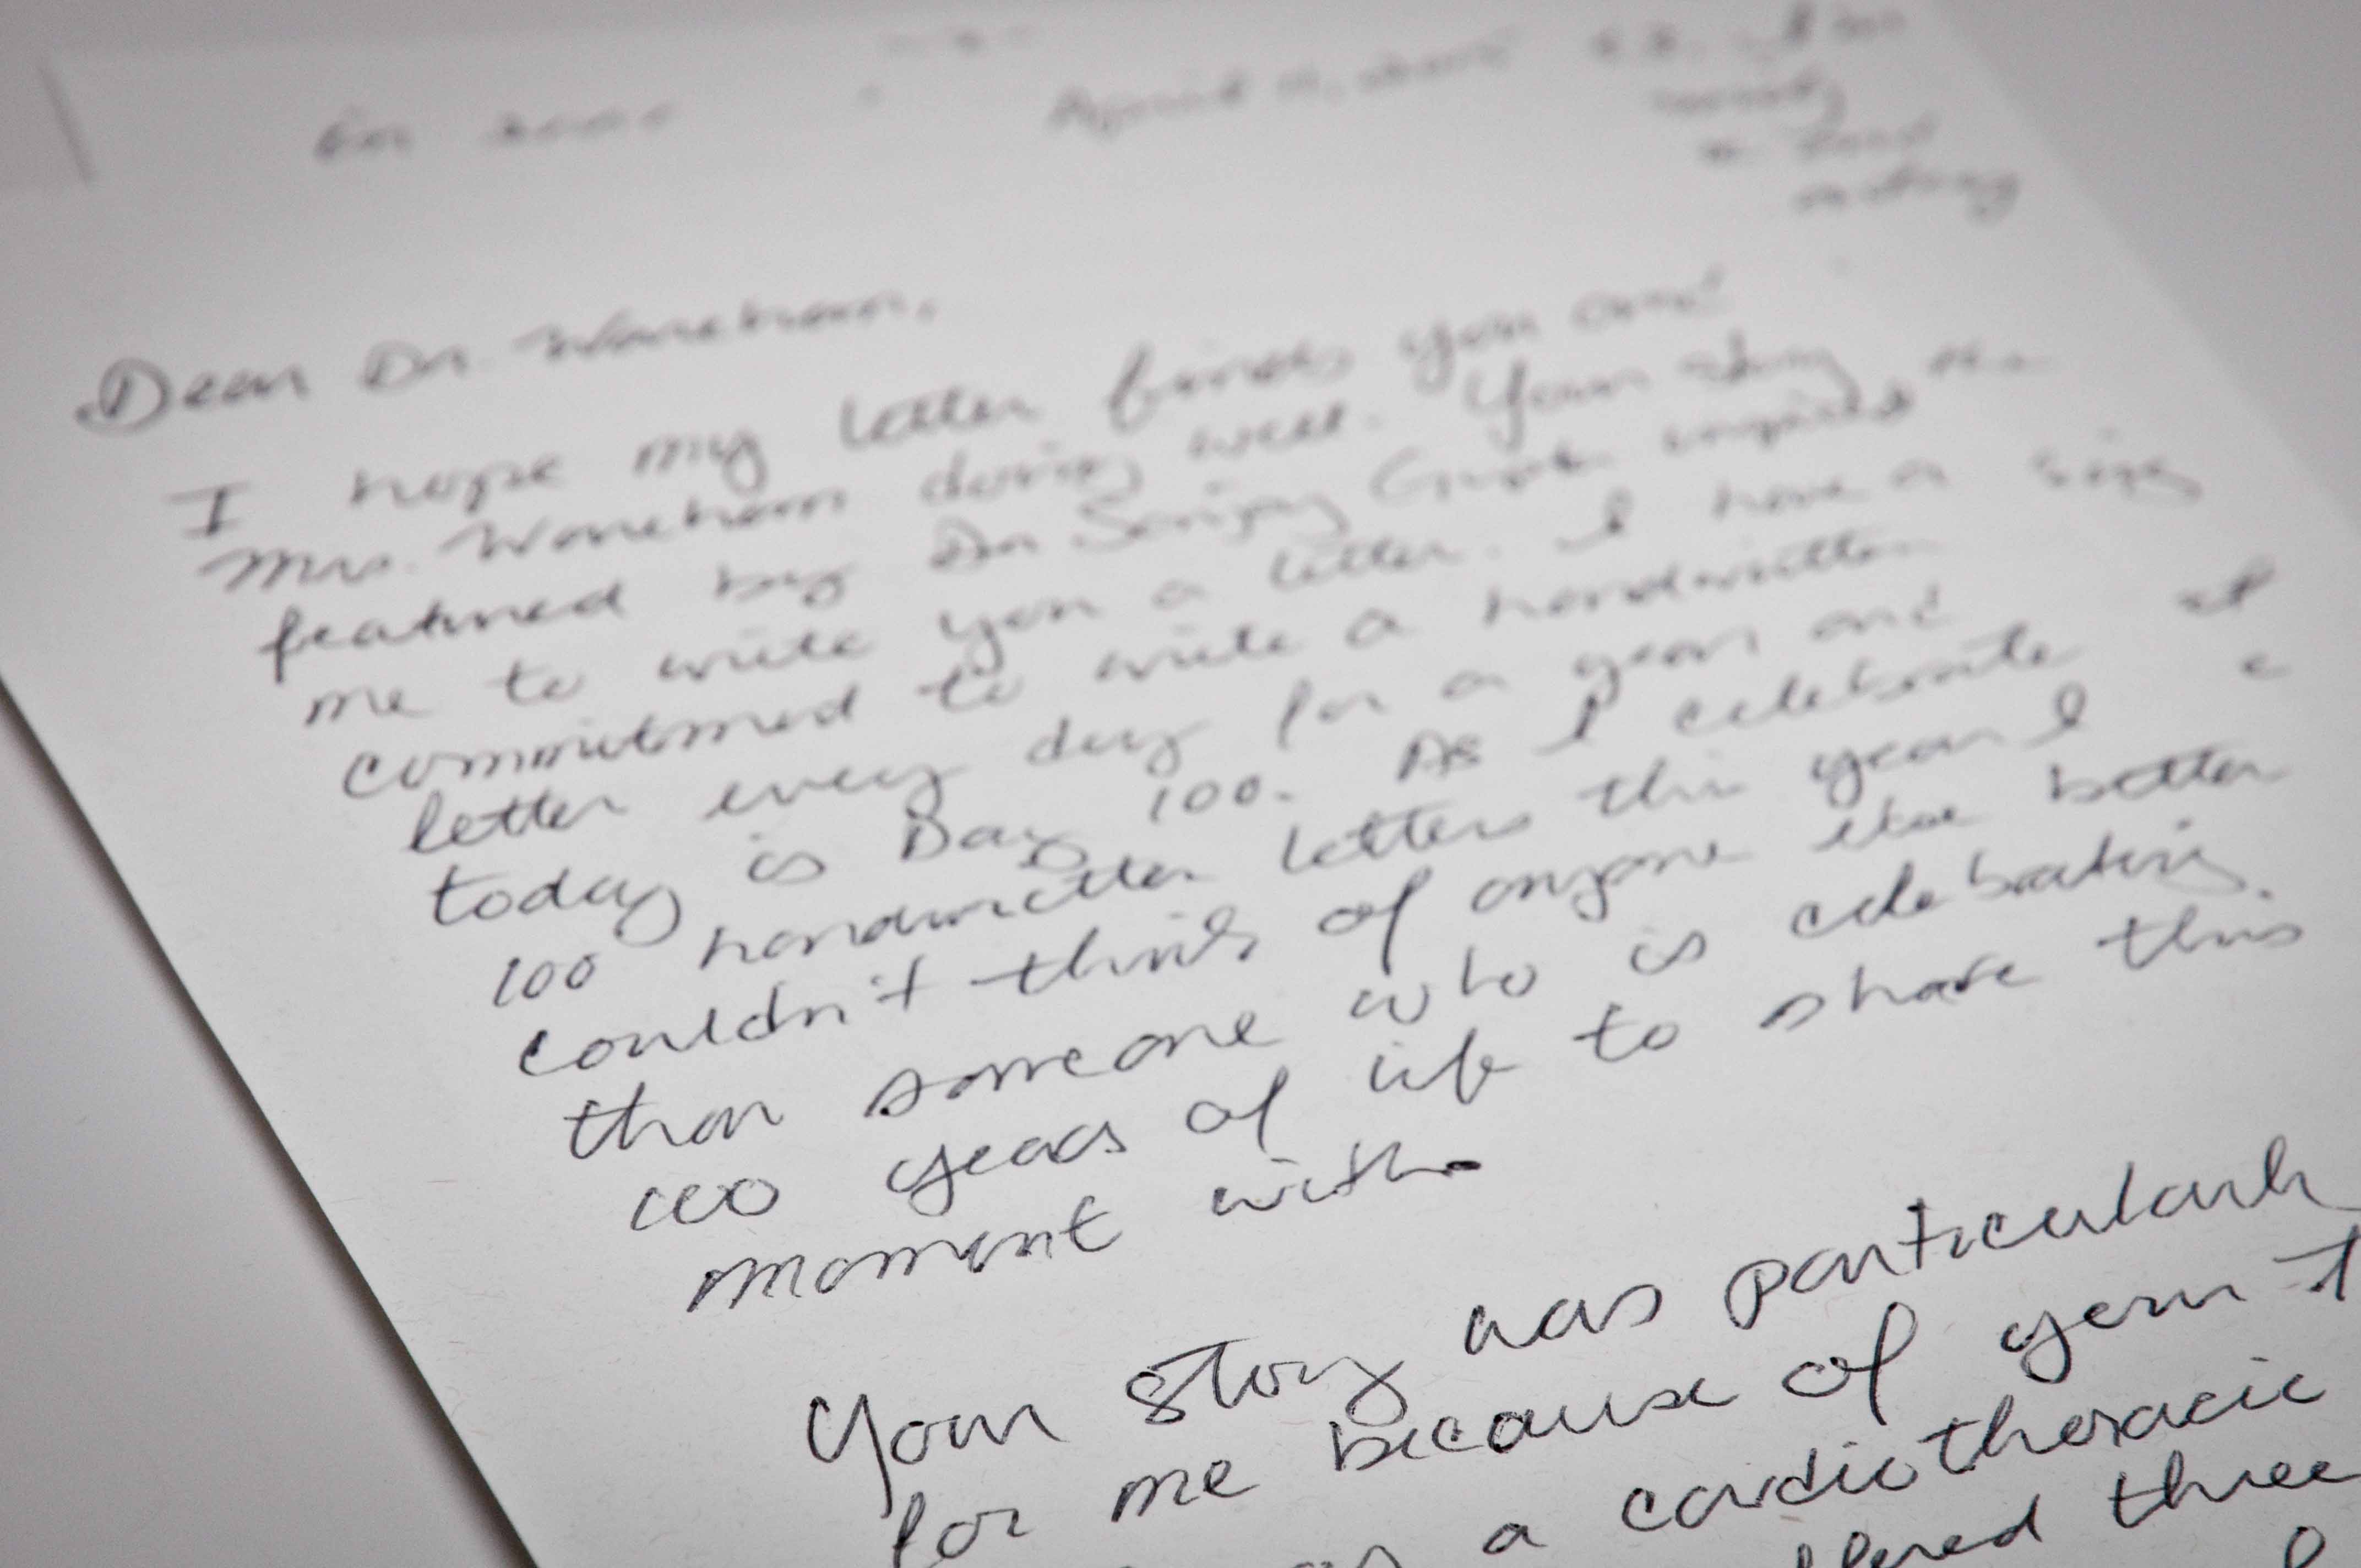 April
Dear Dr. Wareham,
I hope my letter finds you and
Mrs. Wareham doing well. Your story
featured by Dr Sanjay Gupta inspired
me to write you a letter. I have a
committed to write a handwritten
letter every day for a year and
today is Day 100. As I celebrate
100 handwritten letters this year I
couldn't think of anyone else better
than someone who is celebrating
100 years of life to share this
moment with.
Your story was particularly
for me because of your
a cardiothoracic
three